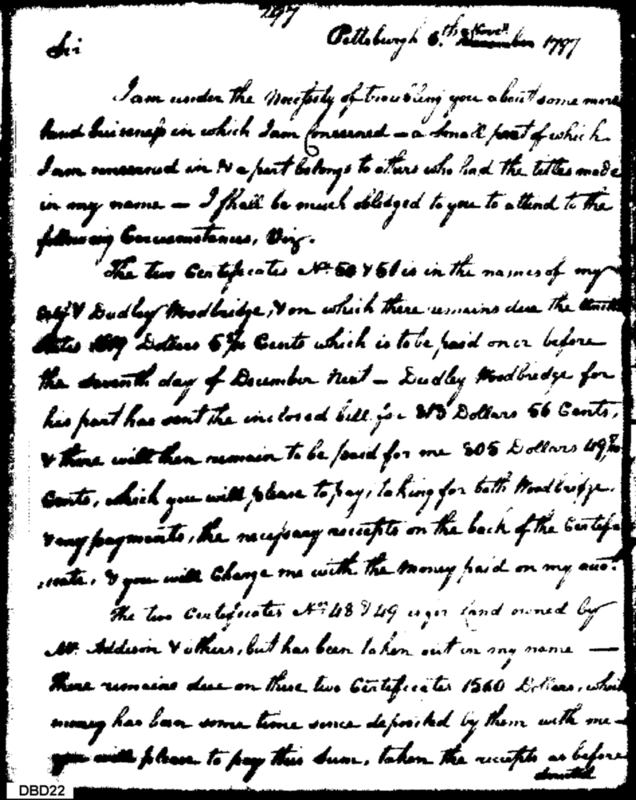 297
Sir Pittsburgh 6th Novr December 1797
I am under the Necessity of troubling you about some more
Land business in which I am Concerned — a small part of which
I am concerned in & a part belongs to others who had the titles made
in my name — I shall be much obliged to you to attend to the
following Circumstances, Viz.
The two Certificates Nos. 50 & 51 is in the names of my
self & Dudley Woodbridge, & on which there remains due the United
States Dollars Cents which is to be paid on or before
the seventh day of December Next — Dudley Woodbridge for
his part has sent the inclosed bill for 813 Dollars 56 Cents,
& there will then remain to be paid for me 805 Dollars 49
Cents, which you will please to pay, taking for both Woodbridge,
& my payments, the necessary receipts on the back of the Certifi
cate, & you will Charge me with the Money paid on my acct.
The two Certificates Nos. 48 & 49 is for land owned by
Mr. Addison & others, but has been taken out in my name —
There remains due on these two Certificates 1560 Dollars, which
money has been some time since deposited by them with me —
you will please to pay this Sum, taken the receipts as before
directed
DBD22